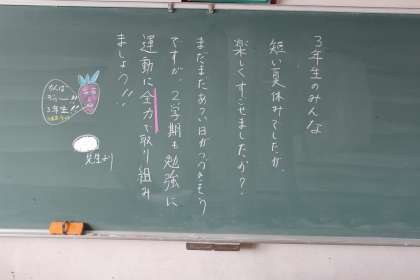 3年生のみんな
短い夏休みでしたが、
楽しくすごせましたか？
まだまだあつい日がつづきそう
ですが、2学期も勉強に
運動に全力で取り組み
ましょう!!
先生より
がんば
3年生!!